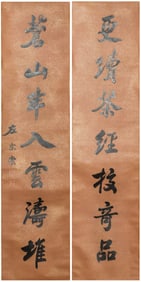 更續茶經校奇品
蒼山半入雲濤堆
左宗棠